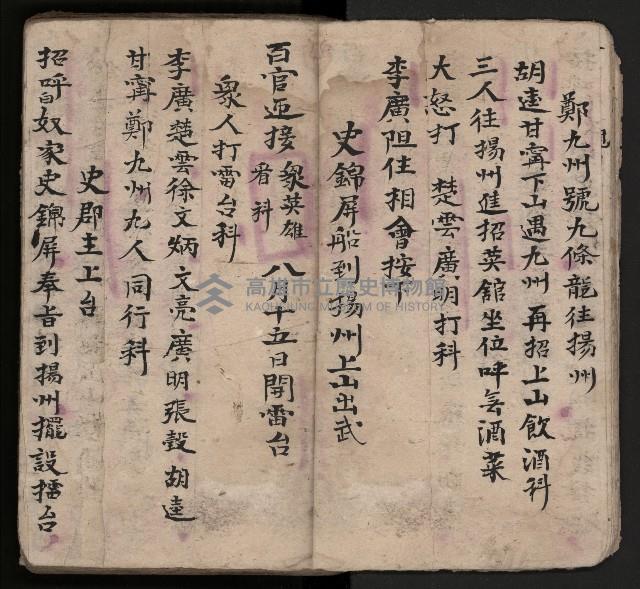 鄭九州號九條龍往揚州
胡逵甘寧下山遇九州再招上山飲酒科
三人往揚州進招英舘坐位呌吾酒菜
大怒打 楚雲廣明打科
李廣阻住相會按下
史錦屏船到揚州上山出武
百官迎接衆英雄看科 八月十五日開雷台
衆人打雷台科
李廣楚雲徐文炳文亮廣明張谷殳胡逵
甘寧鄭九州九人同行科
史郡主上台
招呼白奴家史錦屏奉旨到揚州擺設擂台
高雄市立歷史博物館
KAOHSIUNG MUSEUM OF HISTORY